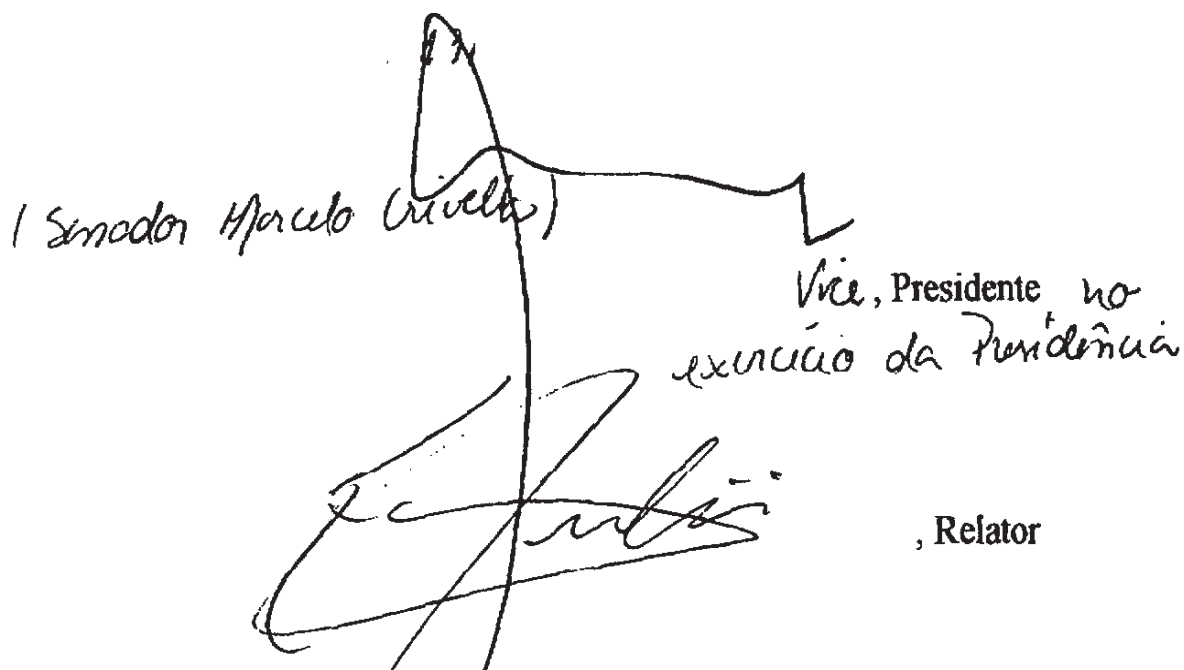 (Senador Marcelo Crivella)
Vice, Presidente no
exercício da Presidência
, Relator